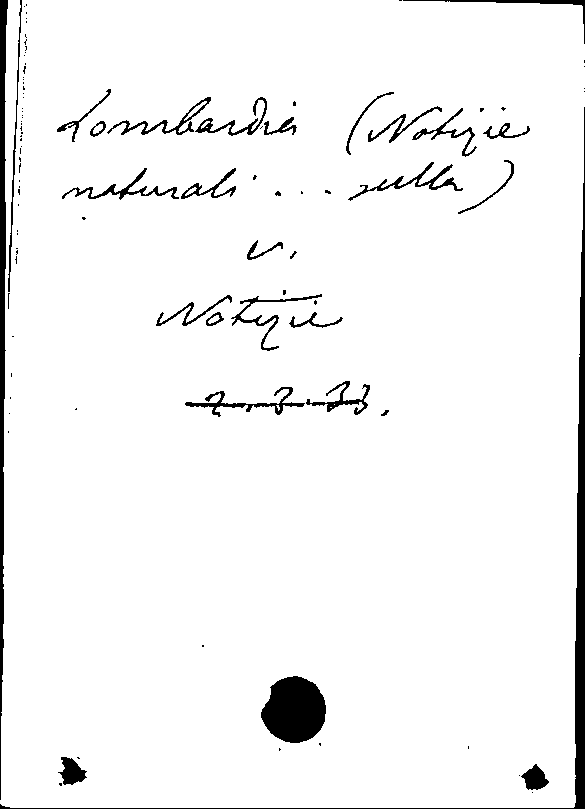 Lombardia (Notizie
naturali ... sulla)
v.
Notizie
2.3.33.